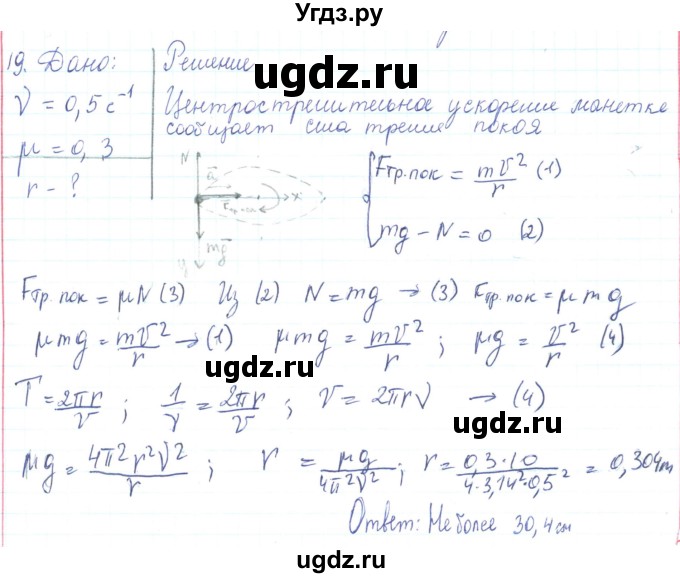 Угдз.ру
19. Дано:
ν = 0,5 с⁻¹
μ = 0,3
r - ?
Решение
Центростремительное ускорение монетке
сообщает сила трения покоя
N
a
Fтр.пок
x
mg
y
Fтр.пок = mv²/r (1)
mg - N = 0 (2)
Fтр.пок = μN (3) Из (2) N = mg → (3) Fтр.пок = μmg
μmg = mv²/r → (1) μmg = mv²/r ; μg = v²/r (4)
T = 2πr/v ; 1/ν = 2πr/v ; v = 2πrν → (4)
μg = 4π²r²ν²/r ; r = μg/4π²ν² ; r = 0,3·10/4·3,14²·0,5² = 0,304m
Ответ: Не более 30,4 см
ugdz.ru
ugdz.ru
ugdz.ru
ugdz.ru
ugdz.ru
ugdz.ru